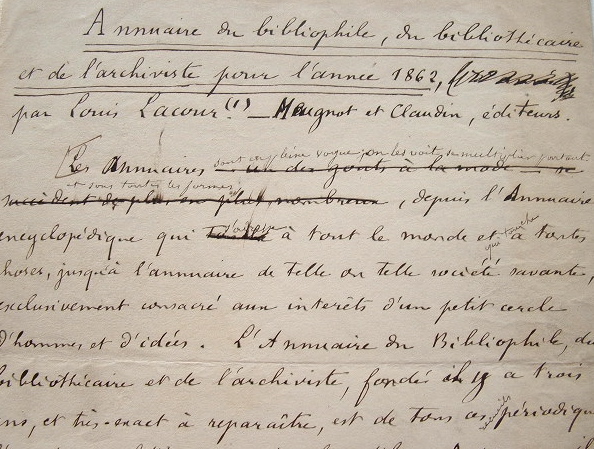 Annuaire du bibliophile, du bibliothécaire
et de l'archiviste pour l'année 1862,
par Louis Lacour (1) — Meugnot et Claudin, éditeurs.
dont en pleine vogue; on les voit se multiplier partout
Les Annuaires un des goûts à la mode se
et sous toutes les formes,
succèdent de plus en plus nombreux, depuis l'Annuaire
encyclopédique qui à tout le monde et qui touche à toutes
choses, jusqu'à l'annuaire de telle ou telle société savante,
exclusivement consacré aux intérêts d'un petit cercle
d'hommes et d'idées. L'Annuaire du Bibliophile, du
bibliothécaire et de l'archiviste, fondé il y a trois
ans, et très-exact à reparaître, est de tous ces périodique